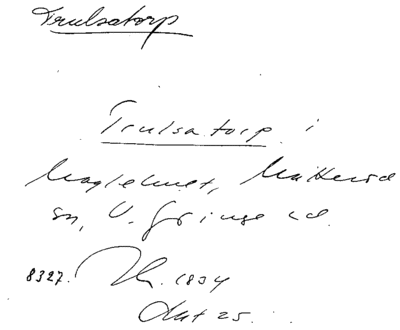 Trulsatorp
Trulsatorp i
Maglehult, Mattered
sn, V. Göinge hd.
8327. 1834
Akt 25.